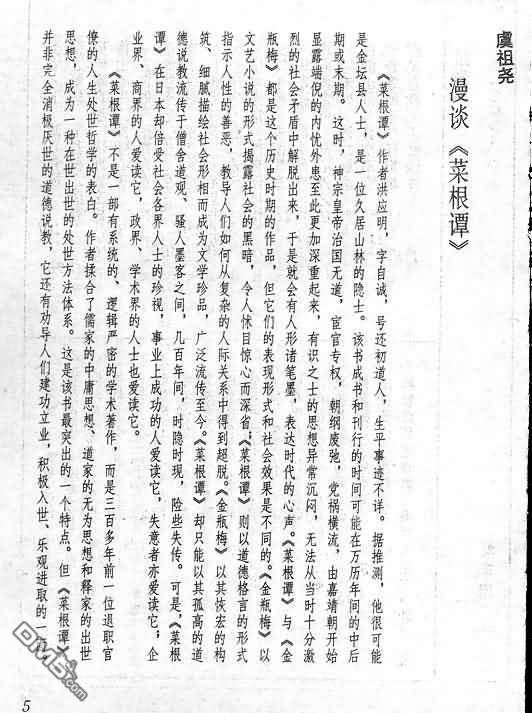 虞祖尧
漫谈《菜根谭》
《菜根谭》作者洪应明，字自诚，号还初道人，生平事迹不详。据推测，他很可能
是金坛县人士，是一位久居山林的隐士。该书成书和刊行的时间可能在万历年间的中后
期或末期。这时，神宗皇帝治国无道，宦官专权，朝纲废弛，党祸横流，由嘉靖朝开始
显露端倪的内忧外患至此更加深重起来，有识之士的思想异常沉闷，无法从当时十分激
烈的社会矛盾中解脱出来，于是就会有人形诸笔墨，表达时代的心声。《菜根谭》与《金
瓶梅》都是这个历史时期的作品，但它们的表现形式和社会效果是不同的。《金瓶梅》以
文艺小说的形式揭露社会的黑暗，令人怵目惊心而深省；《菜根谭》则以道德格言的形式
指示人性的善恶，教导人们如何从复杂的人际关系中得到超脱。《金瓶梅》以其恢宏的构
筑、细腻描绘社会形相而成为文学珍品，广泛流传至今。《菜根谭》却只能以其孤高的道
德说教流传于僧舍道观、骚人墨客之间，几百年间，时隐时现，险些失传。可是，《菜根
谭》在日本却倍受社会各界人士的珍视，事业上成功的人爱读它，失意者亦爱读它；企
业界、商界的人爱读它，政界、学术界的人士也爱读它。
《菜根谭》不是一部有系统的、逻辑严密的学术著作，而是三百多年前一位退职官
僚的人生处世哲学的表白。作者揉合了儒家的中庸思想、道家的无为思想和释家的出世
思想，成为一种在世出世的处世方法体系。这是该书最突出的一个特点。但《菜根谭》
并非完全消极厌世的道德说教，它还有劝导人们建功立业，积极入世、乐观进取的一
5